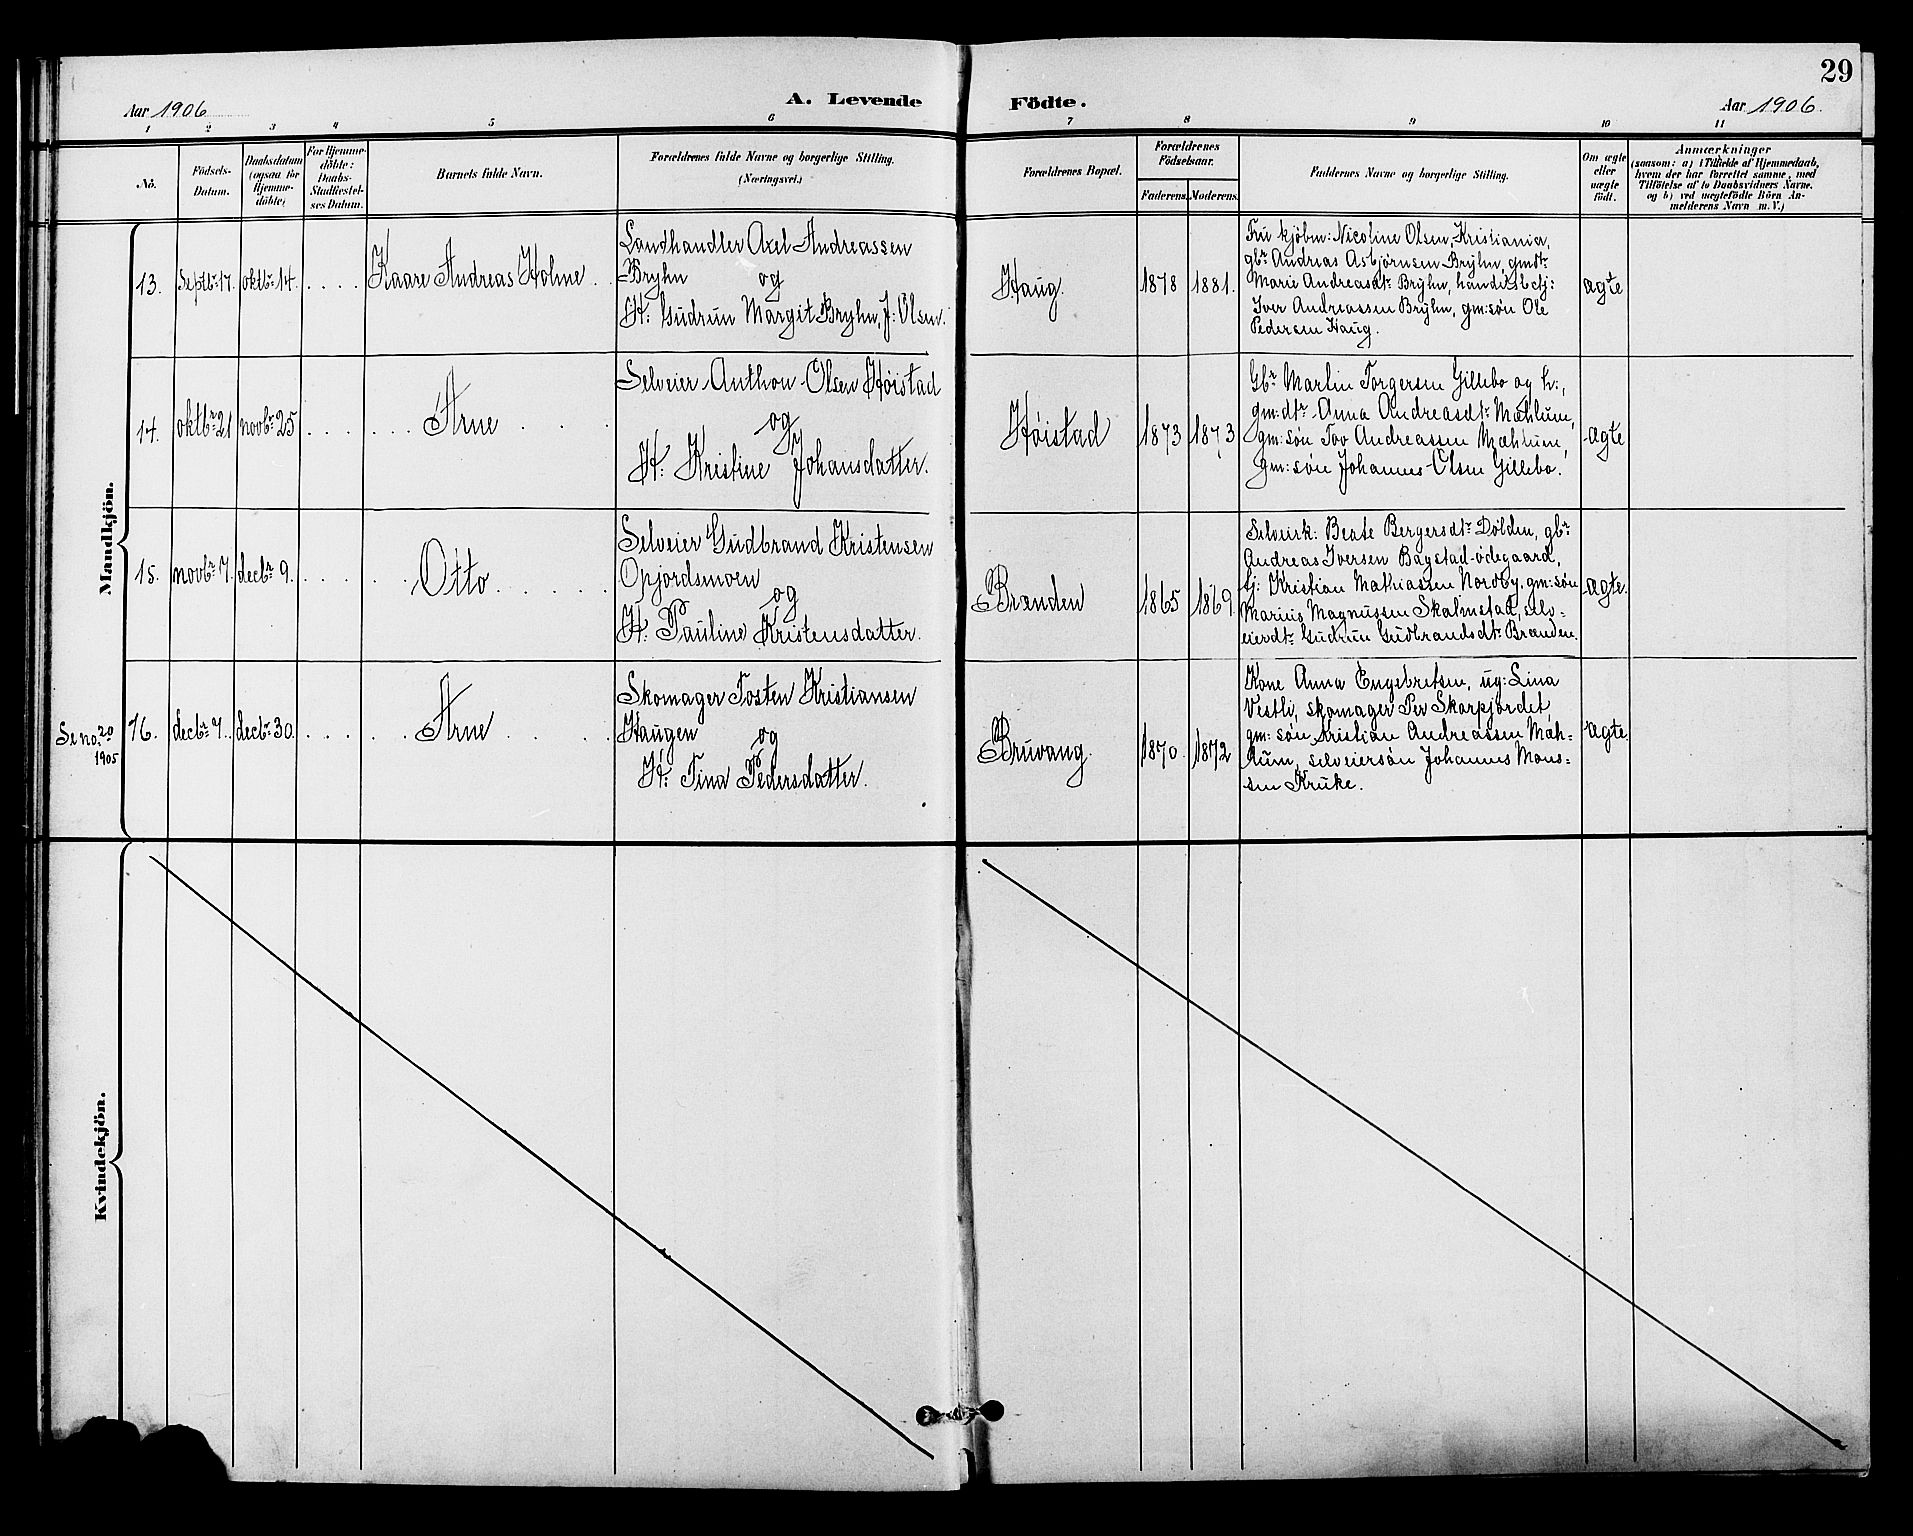 29
Aar 1906
A. Levende
Födte.
Aar 1906.
1 2 3 4 5 6 7 8 9 10 11
No.
Födsels-
Datum.
Daabsdatum
(ogsaa for
Hjemme-
döbte)
For Hjemme-
döbte:
Daabs-
Stadfæstel-
ses Datum.
Barnets fulde Navn.
Forældrenes fulde Navne og borgerlige Stilling.
(Næringsvei.)
Forældrenes Bopæl.
Forældrenes
Födselsaar.
Faderens.
Moderens.
Faddernes Navne og borgerlige Stilling.
Om ægte
eller
uægte
födt.
Anmærkninger
(saasom: a) i Tilfælde af Hjemmedaab,
hvem der har forrettet samme, med
Tilföielse af to Daabsvidners Navne.
og b) ved uægtefödte Börn An-
melderens Navn m. V.)
Mandkjön.
13.
Septbr 17.
oktbr 14.
Kaare Andreas Holme
Landhandler Axel Andreassen
Bryhn og
H: Gudrun Margit Bryhn, f: Olsen.
Haug.
1878
1881.
Fru kjøbm: Nicoline Olsen, Kristiania,
gbr Andreas Asbjørnsen Bryhn, gmdtr
Marie Andreasdtr Bryhn, handelsbetj:
Iver Andreassen Bryhn, gm:søn Ole
Pedersen Haug.
ægte
14.
oktbr 21
novbr 25
Arne
Selveier Anthon Olsen Høistad
og
H: Kristine Johansdatter.
Høistad
1873
1873
Gbr Martin Torgersen Gillebo og h:,
gm:dtr Anna Andreasdtr Mæhlum,
gm:søn Tov Andreassen Mæhlum,
gm:søn Johannes Olsen Gillebo.
ægte
15.
novbr 7.
decbr 9.
Otto
Selveier Gudbrand Kristensen
Opjordsmoen
og
H: Pauline Kristensdatter.
Brænden
1865
1869
Selveierk: Beate Bergersdtr Dølden, gbr
Andreas Iversen Bagstad-ødegaard,
tj: Kristian Mathiassen Nordby, gm:søn
Marius Magnussen Skalmstad, selv-
eierdtr Gudrun Gudbrandsdtr Brænden.
ægte.
Se no. 20
1905
16.
decbr 7.
decbr 30.
Arne
Skomager Tosten Kristiansen
Haugen og
H: Tina Pedersdatter.
Bruvang.
1870.
1872
Kone Anna Engebretsen, ug: Lina
Vestli, skomager Per Skarpjordet,
gm: søn Kristian Andreassen Mæh-
lum, selveiersøn Johannes Mons-
sen Kruke.
ægte.
Kvindekjön.